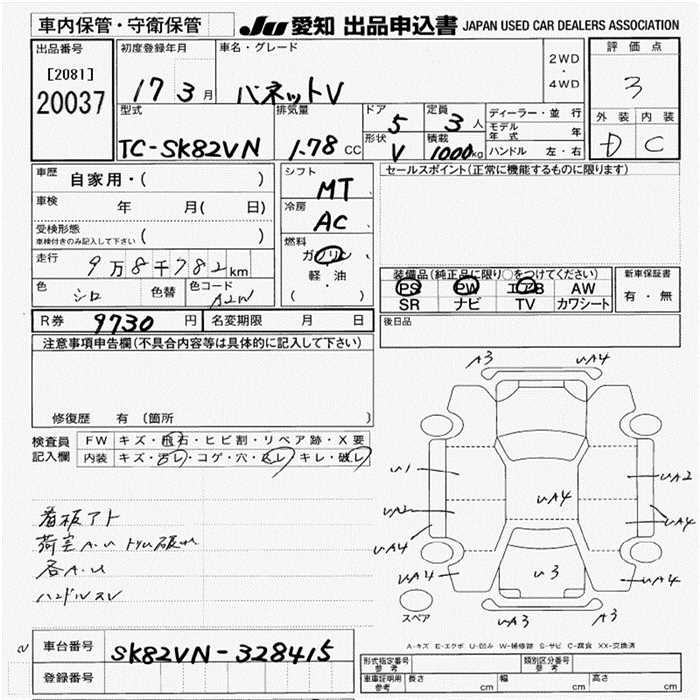 車内保管・守衛保管
JU 愛知 出品申込書 JAPAN USED CAR DEALERS ASSOCIATION
出品番号
[2081]
20037
初度登録年月
17 3月
車名・グレード
バネットV
2WD
・
4WD
評価点
3
外装 内装
D C
型式
TC-SK82VN
排気量
1.78 CC
ドア
5
形状
V
定員
3人
積載
1000kg
ディーラー・並行
モデル年式 年
ハンドル 左・右
車歴
自家用・( )
車検
年 月( 日)
受検形態
車検付きのみ記入して下さい ( )
走行
9万8千782km
色
シロ
色替
色コード
A2W
シフト
MT
冷房
AC
燃料
ガソリン
軽・油
( )
セールスポイント(正常に機能するものに限ります)
装備品(純正品に限り○をつけてください)
PS PW エアB AW
SR ナビ TV カワシート
新車保証書
有・無
後日品
R券 9730円 名変期限 月 日
注意事項申告欄(不具合内容等は具体的に記入して下さい)
修復歴 有 〔箇所 〕
検査員
記入欄
FW キズ・飛石・ヒビ割・リペア跡・X要
内装 キズ・汚レ・コゲ・穴・スレ・キレ・破レ
看板アト
荷室A.U
各A.U
ハンドルスレ
A3 UA4
U1
UA2
UA2
UA4
UA4
UA4
UA4
U3
UA4
UA3 A3
スペア
A-キズ E-エクボ U-凹み W-補修跡 S-サビ C-腐食 XX-交換済
車台番号
SK82VN-328415
登録番号
形式指定番号
参考
類別区分番号
参考
車庫証明用
参考
長さ cm
幅 cm
高さ cm